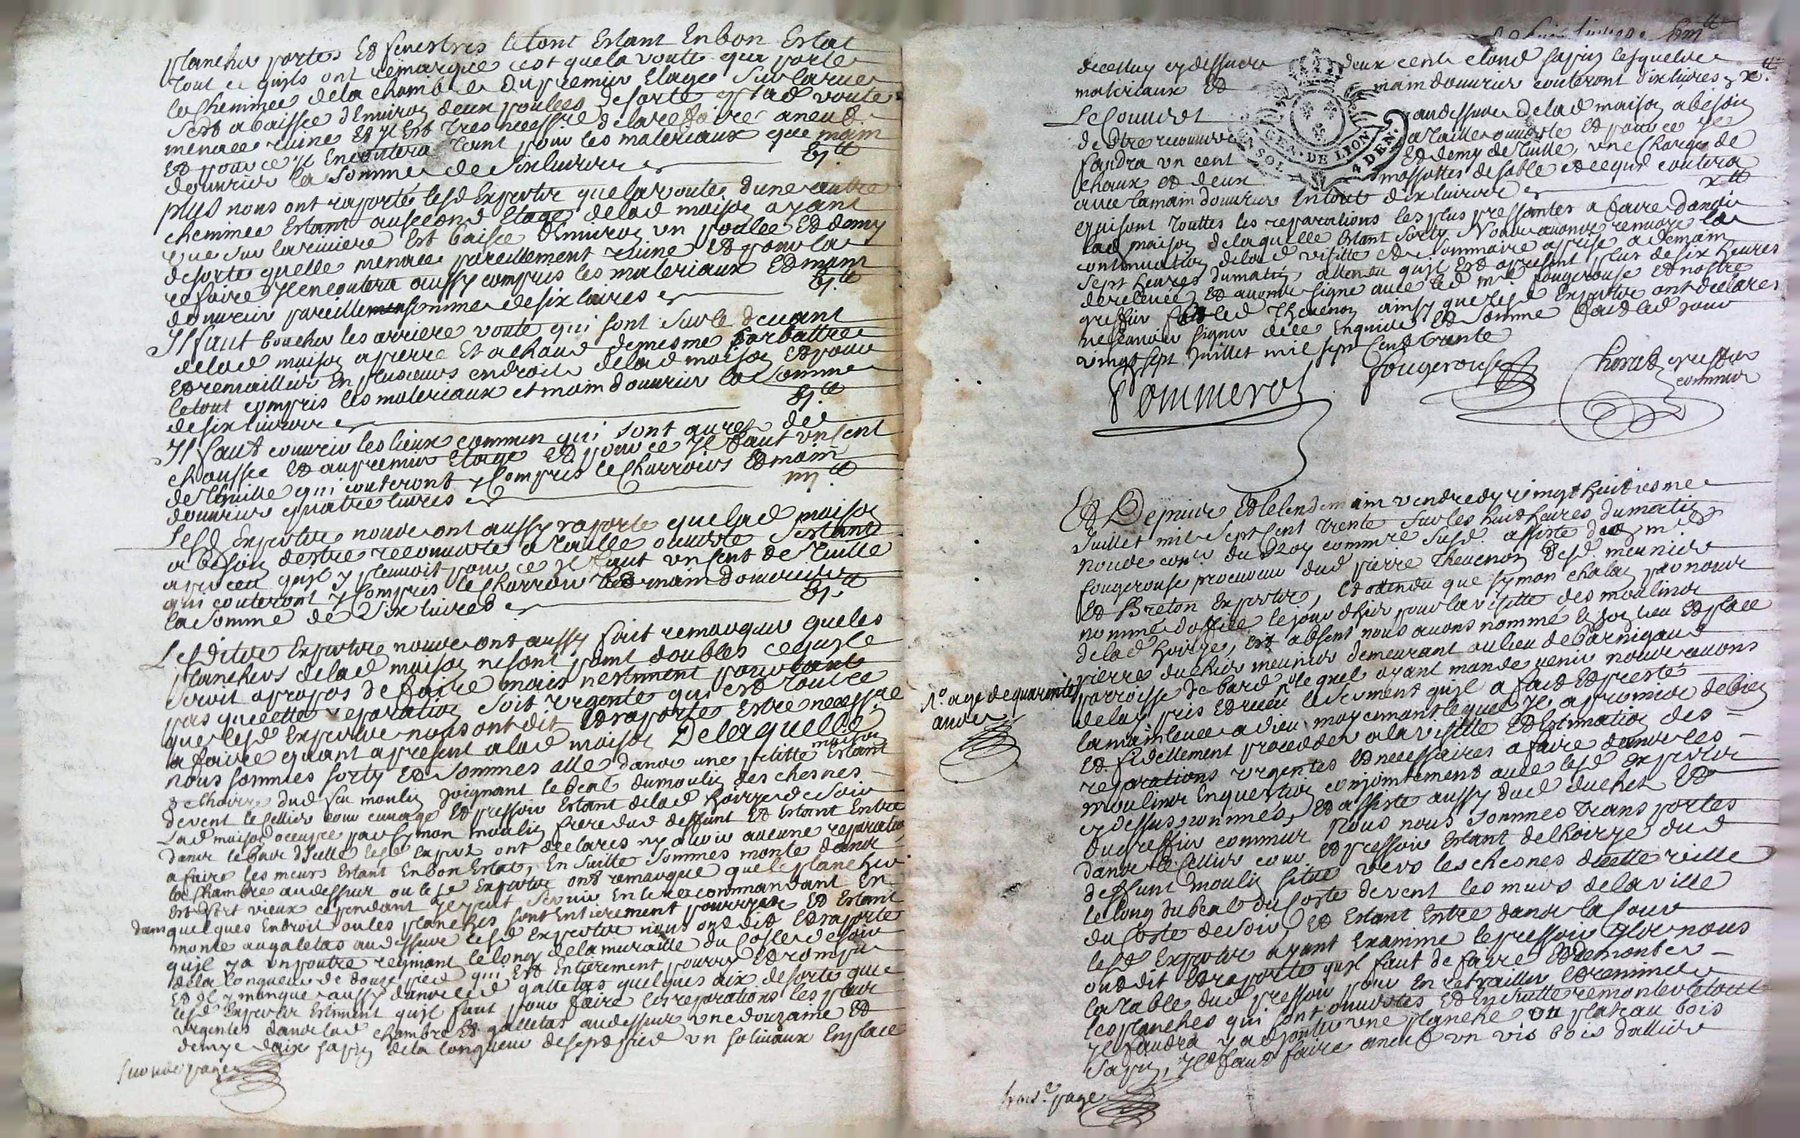 planchers portes Et fenestres le tout Estant En bon Estat
tout ce quils ont remarqué cest que la voute qui porte
la chemmée de la chambre du premier Etage sur la rue
sest abaissée d'Environ deux poulces de sorte q. lad voute
menace ruine et Il Est tres necessre de la refaire a neuf
Et pour ce Il En coutera tant pour les materiaux que main
douvrier la somme de six livres 6tt
plus nous ont raporté lesd Experts que la voute d'une autre
chemmée Estant au second Etage de lad maison ayant
veue sur la riviere Est baissée d'Environ un poulce Et demy
de sorte quelle menace pareillement ruine Et pour la
refaire Il en coutera aussy compris les materiaux Et main
douvrier pareille somme de six livres
Il faut boucher les arriere voute qui sont sur le devant
de lad maison a pierre Et a chaud de mesme
Et remailler En plusieurs endroits de lad maison Et pour
le tout compris les materiaux et main douvrier la somme
de six livres
Il faut couvrir les lieux commun qui sont au rez de
chaussée Et au premier Etage Et pour ce Il faut un cent
de thuille qui couteront y compris le charrois Et main
douvrier quatre livres
Lesd Experts nous ont aussy raporté que lad maison
a besoin destre recouverte a taille ouverte
quil y pleuvoit pour ce Il faut un cent de thuille
qui couteront y compris le charrois Et main douvrier
la somme de six livres
Lesdits Experts nous ont aussy fait remarquer que les
planchers de lad maison ne sont point doubles ce quil
seroit a propos de faire mais
pas que cette reparation soit urgente qui est tout ce
que lesd Experts nous ont dit Et raporté Estre necessre
a faire quant a present a lad maison De laquelle
nous sommes sorty Et sommes allé dans une petitte maison Estant
de lhoirye dud feu moulin joignant le béal du moulin des chesnes
devent le cellier cour cuvage Et pressoir Estant de lad hoirye de soir
Lad maison occupée par Symon moulin frere dud deffunt Et Estant Entré
dans le bas dicelle lesd Experts ont declarés ny avoir aucune reparation
a faire les meurs Estant En bon Estat, En suitte sommes monté dans
la chambre au dessus ou lesd Experts ont remarqué que le plancher
Est fort vieux cependant Il peut servir En le recommandant En
dans quelques Endroit ou les planches sont Entierement pourryes Et Estant
monté au galetas au dessus lesd Experts nous ont dit Et raporté
quil y a un poutre regnant le long de la muraille du cotté de soir
de la longueur de douze pied qui Est Entierement pourry Et rompu
Et Il y manque aussy dans led galletas quelques aix de sorte que
lesd Experts Estiment quil faut pour faire les reparations les plus
urgentes dans lad chambre Et galletas au dessus une douzaine Et
demye daix sapin de la longueur de sept pied un solivaux En place
seconde page
de celluy cy dessus deux cent clous sapin lesquels
materiaux Et main douvrier couteront dix livres
Le couvert au dessus de lad maison a besoin
destre recouvert a taille ouverte Et pour ce Il
faudra un cent Et demy de tuille, une charge de
chaux et deux massottes de sable et ce qui coutera
avec la main douvrier En tout dix livres
GEN. DE LION
4 DEN
qui sont touttes les reparations les plus pressantes a faire dans
lad maison de laquelle Estant sorty Nous avons renvoyé la
continuation de lad visitte Et sommaire aprise a demain
sept heures du matin attendu quil Est a present plus de six heures
de relevée Et avons signé avec led mr. fougerouse Et nostre
greffier led Thevenon ainsy que lesd Experts ont declarés
ne scavoir signer de ce Enquis Et sommé fait led jour
vingt sept Juillet mil sept cent trente
Pommerol fougerouse Chovat greffier
commis
Et Depuis Et le lendemain vendredy vingt huitiesme
Juillet mil sept cent trente sur les huit heures du matin
nous conr du Roy commre susd assisté de mr
fougerouse procureur dud pierre Thevenon Desd meunier
Et Breton Experts, Et attendu que Symon chalas par nous
nommé doffice le jour dhier pour la visitte des moulins
de lad hoirye, Est absent nous avons nommé En son lieu Et place
pierre duchez meunier demeurant au lieu de barnigaud
parroisse de bard lequel ayant mandé venir nous avons
de luy pris Et receu le serment quil a fait Et presté
la main levée a dieu moyennant lequel Il a promis de bien
Et fidellement proceder a la visitte Et Estimation des
reparations urgentes Et necessaires a faire dans les
moulins En question conjointement avec lesd Experts
cy dessus nommés, Et assisté aussy dud duchez Et
du greffier commis nous nous sommes transportés
dans le Cellier cour Et pressoir Estant de lhoirye dud
deffunt moulin situé vers les chesnes de cette ville
le long du béal du costé devent les murs de la ville
du costé de soir, Et Estant Entré dans la cour
lesd Experts ayant Examiné le pressoir Iceux nous
ont dit Et raporté quil faut deffaire Et demonter
la table dud pressoir pour En retailler Et remettre
les planches qui sont ouvertes Et En suitte remonter le tout
Il faudra y adjouter une planche ou plateau bois
sapin, Il faut faire aneuf un vis bois dallier
N.o agé de quarante
ans
trois.e page